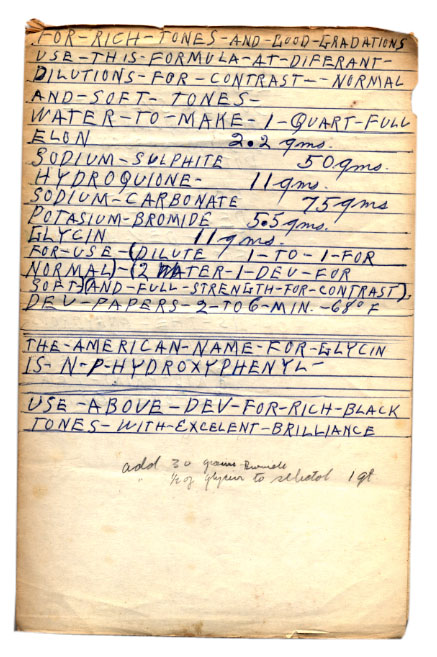 FOR-RICH-TONES-AND-GOOD-GRADATIONS
USE-THIS-FORMULA-AT-DIFERANT-
DILUTIONS-FOR-CONTRAST--NORMAL
AND-SOFT-TONES-
WATER-TO-MAKE-1-QUART-FULL
ELON 2.2 gms.
SODIUM-SULPHITE 50 gms.
HYDROQUIONE- 11 gms.
SODIUM-CARBONATE 75 gms
POTASIUM-BROMIDE 5.5 gms.
GLYCIN 11 gms.
FOR-USE-(DILUTE 1-TO-1-FOR
NORMAL)-(2 WATER-1-DEV-FOR
SOFT-(AND-FULL-STRENGTH-FOR-CONTRAST).
DEV-PAPERS-2-TO6-MIN.-68°F
THE-AMERICAN-NAME-FOR-GLYCIN
IS-N-P-HYDROXYPHENYL-
USE-ABOVE-DEV-FOR-RICH-BLACK
TONES-WITH-EXCELENT-BRILLIANCE
add 30 grains
" of glycin to selectol 1 qt